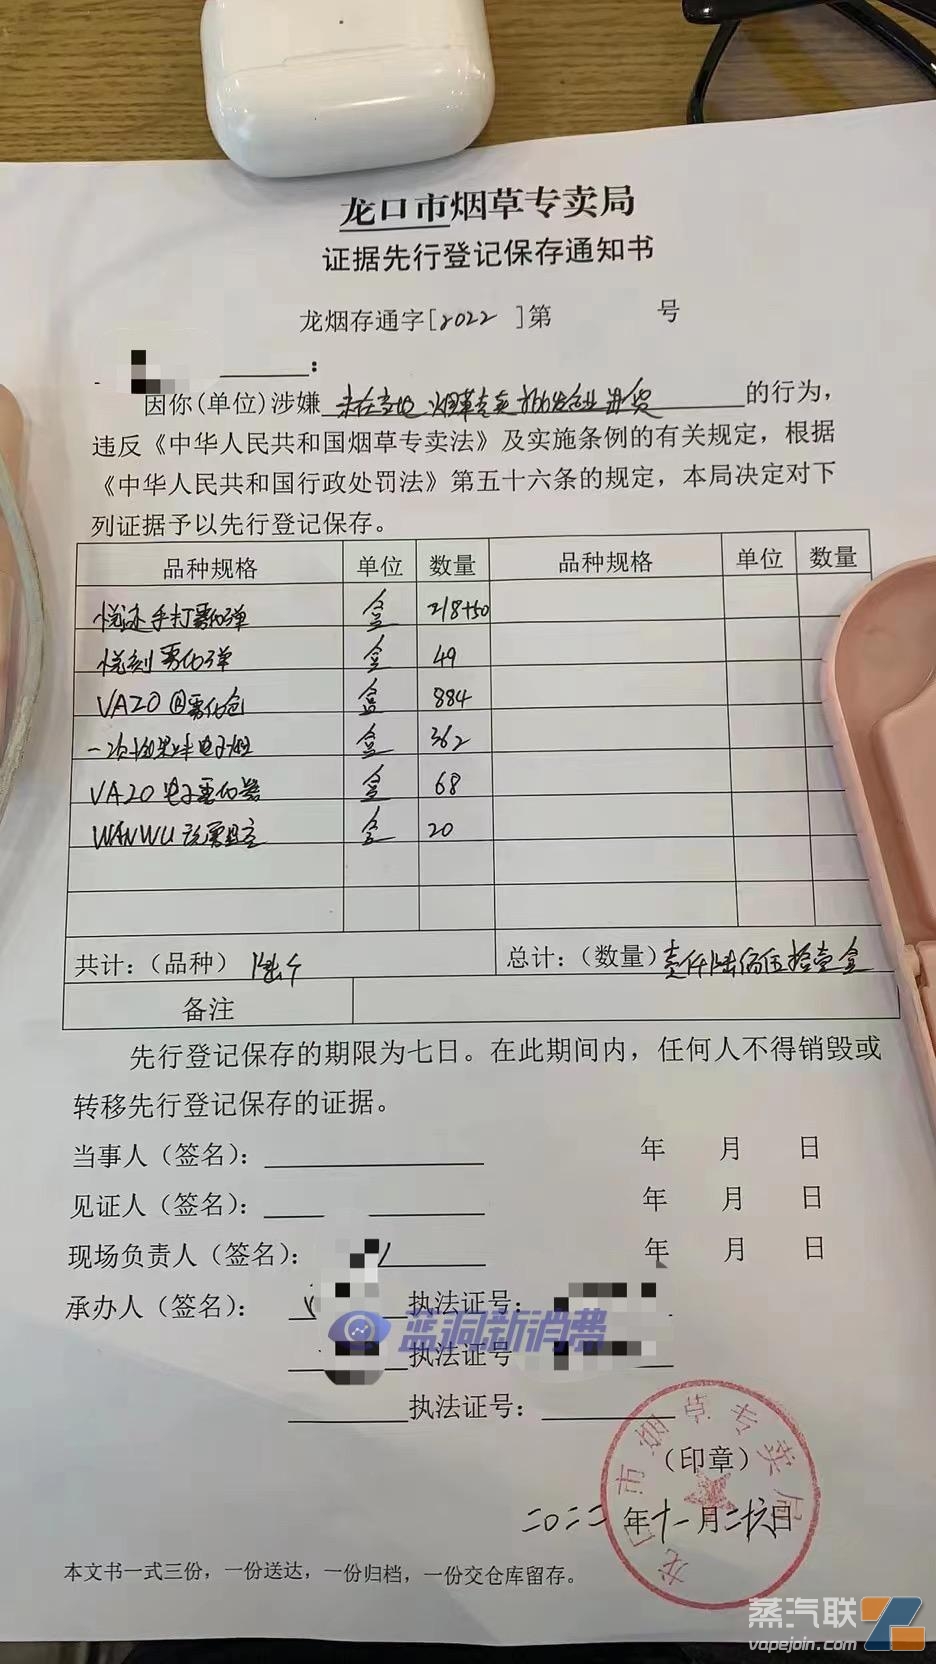 龙口市烟草专卖局
证据先行登记保存通知书
龙烟存通字[2022 ]第 号
:
因你(单位)涉嫌 未在当地烟草专卖批发企业进货 的行为,
违反《中华人民共和国烟草专卖法》及实施条例的有关规定,根据
《中华人民共和国行政处罚法》第五十六条的规定,本局决定对下
列证据予以先行登记保存。
品种规格 单位 数量 品种规格 单位 数量
悦迹手打雾化弹 盒 218+50
悦刻雾化弹 盒 49
VAZO 雾化 盒 884
一次性 电子烟 盒 362
VAZO 电子雾化器 盒 68
WANWU 盒 20
共计:(品种) 陆个 总计:(数量) 壹仟陆佰伍拾壹盒
备注
先行登记保存的期限为七日。在此期间内,任何人不得销毁或
转移先行登记保存的证据。
当事人(签名): 年 月 日
见证人(签名): 年 月 日
现场负责人(签名): 年 月 日
承办人(签名): 执法证号:
蓝洞新消费
执法证号
执法证号:
龙口市烟草专卖局
(印章)
二〇二二年十一月二十六日
本文书一式三份,一份送达,一份归档,一份交仓库留存。
蒸汽联
vapejoin.com